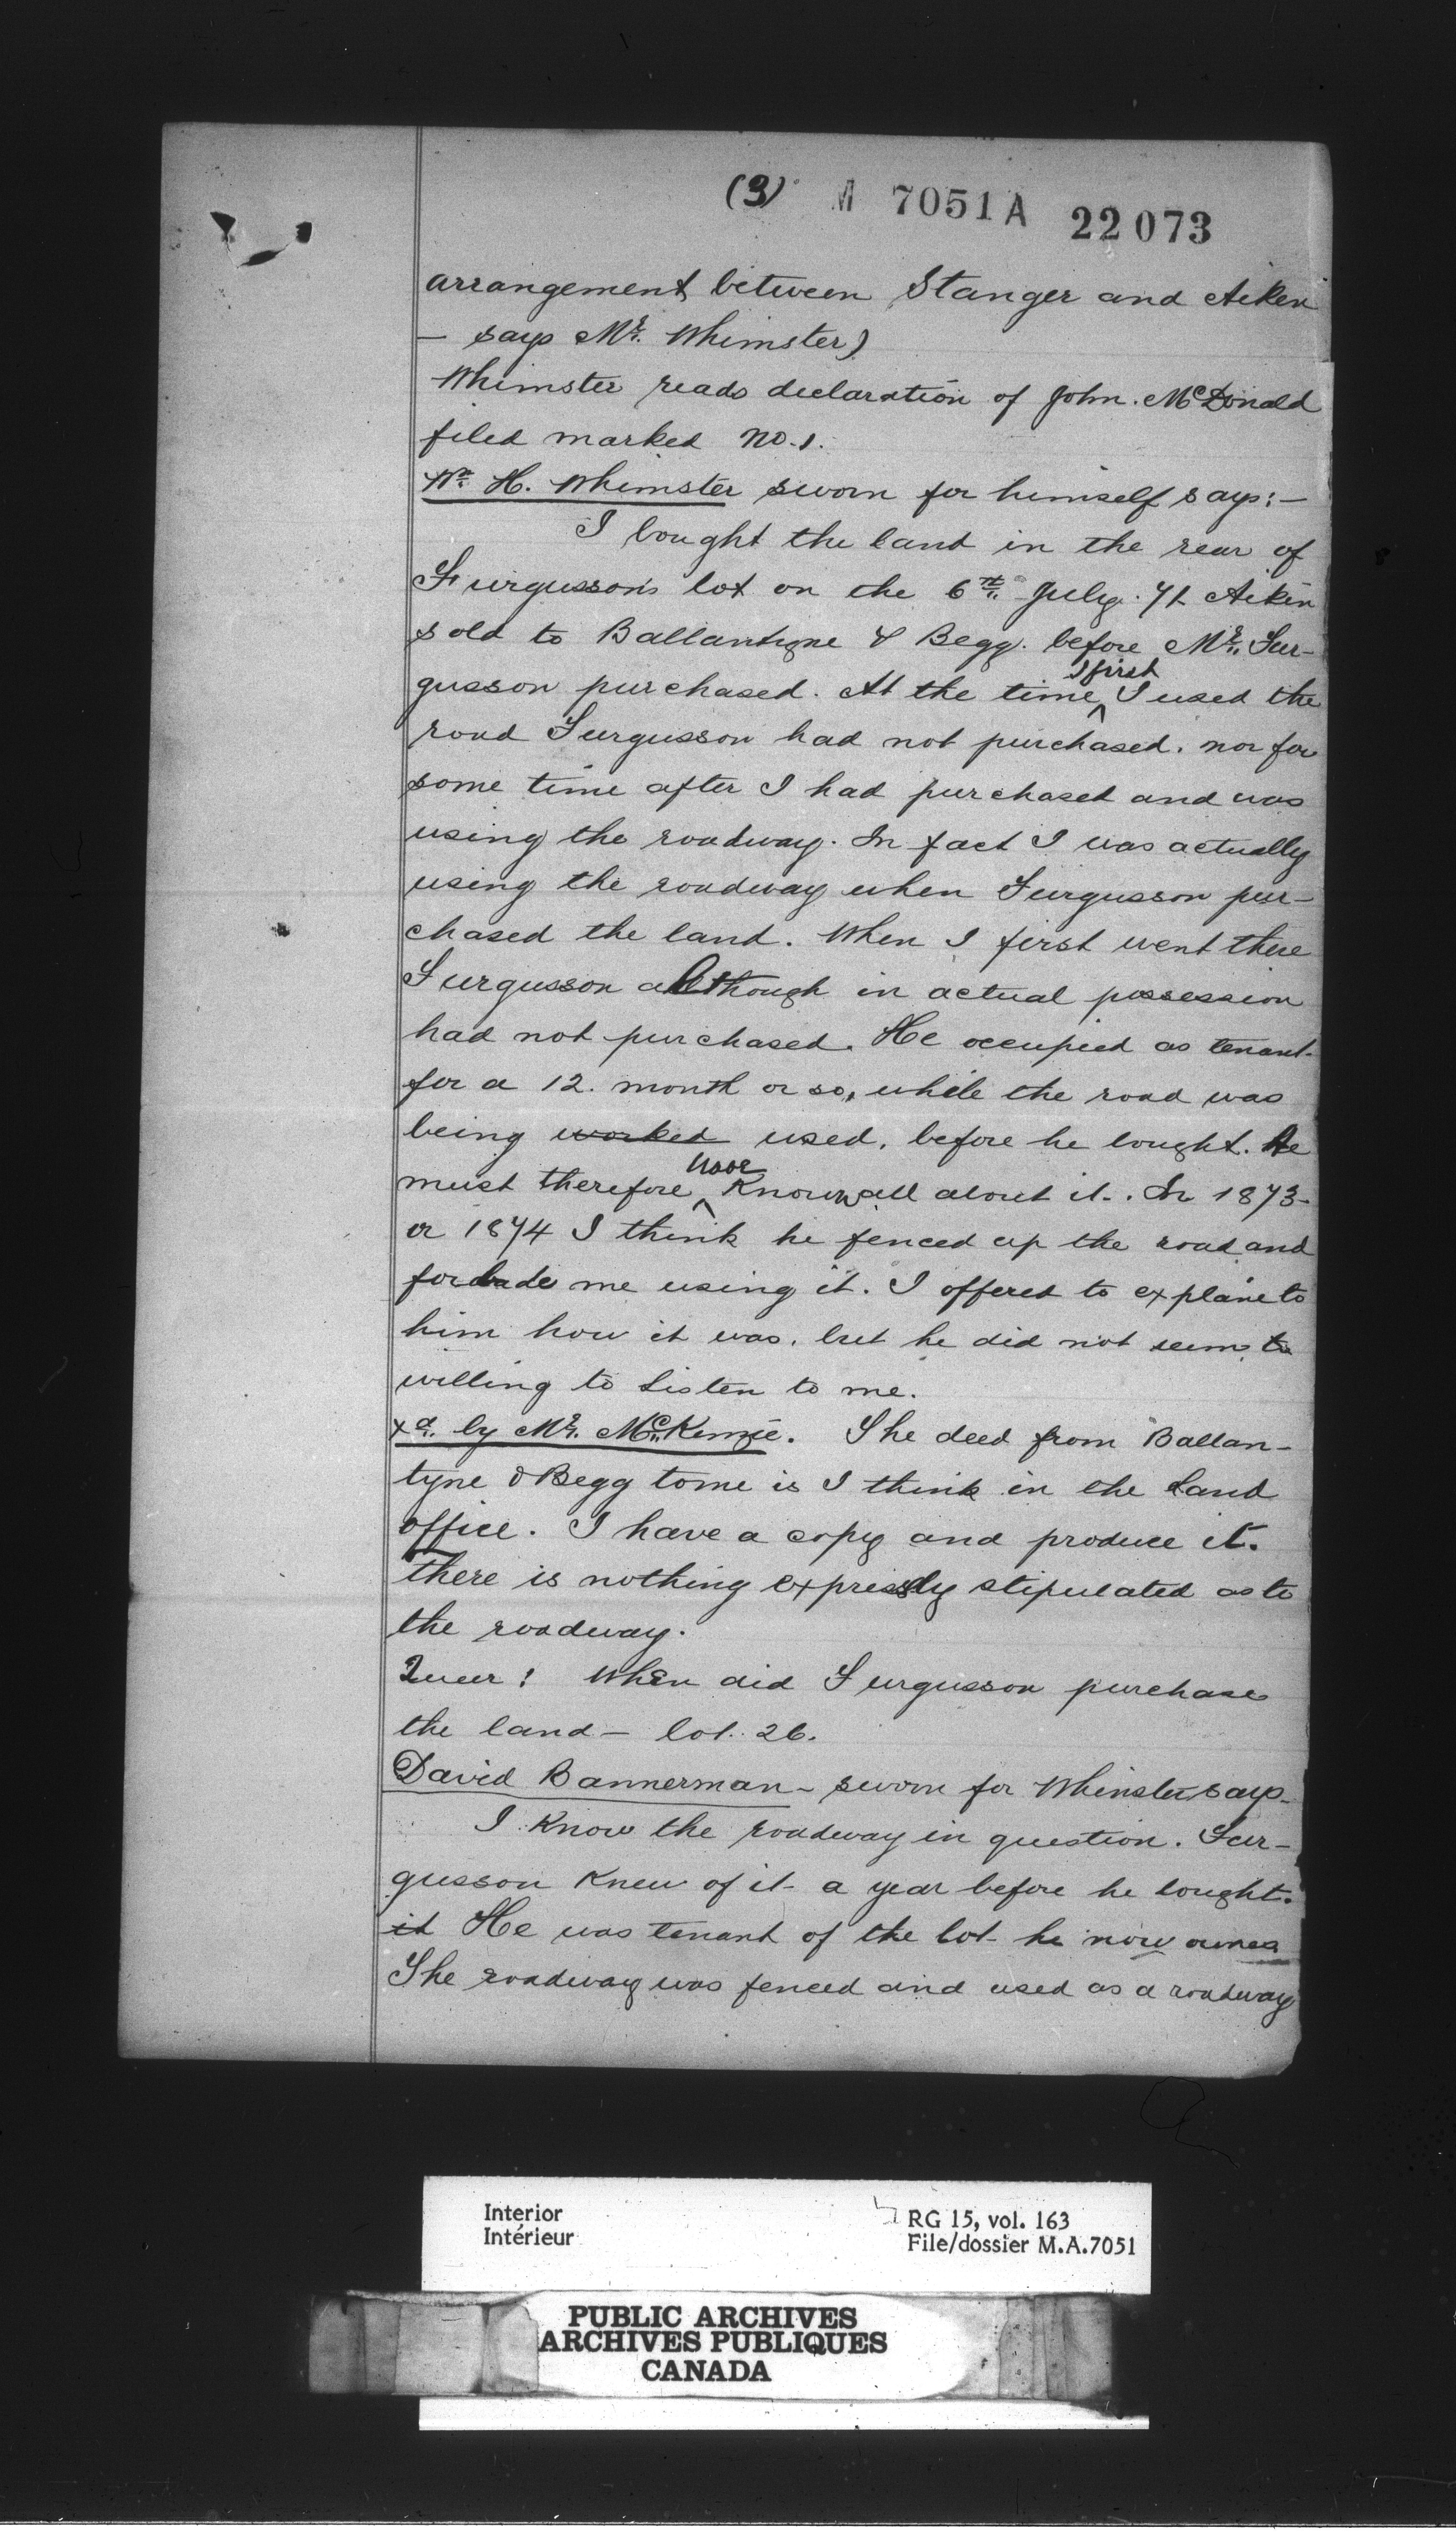 (3) M 7051A 22073
arrangement between Stanger and Aiken
— says Mr. Whimster)
Whimster reads declaration of John. McDonald
filed marked No. 1.
Wm H. Whimster sworn for himself says:—
I bought the land in the rear of
Furgusson's lot on the 6th July. 71 Aiken
sold to Ballantyne & Begg. before Mr. Fur-
gusson purchased. At the time I first I used the
road Furgusson had not purchased. nor for
some time after I had purchased and was
using the roadway. In fact I was actually
using the roadway when Furgusson pur-
chased the land. When I first went there
Furgusson although in actual possession
had not purchased. He occupied as tenant
for a 12. month or so, while the road was
being worked used, before he bought. He
must therefore have known all about it. In 1873
or 1874 I think he fenced up the road and
forbade me using it. I offered to explaine to
him how it was, but he did not seem to
willing to listen to me.
xd. by Mr. McKenzie. The deed from Ballan-
tyne & Begg to me is I think in the Land
office. I have a copy and produce it.
there is nothing expressly stipulated as to
the roadway.
Quer: When did Furgusson purchase
the land — lot. 26.
David Bannerman — sworn for Whimster says—
I know the roadway in question. Fur-
gusson knew of it a year before he bought.
it He was tenant of the lot he now ownes
The roadway was fenced and used as a roadway
Interior
Intérieur
RG 15, vol. 163
File/dossier M.A.7051
PUBLIC ARCHIVES
ARCHIVES PUBLIQUES
CANADA